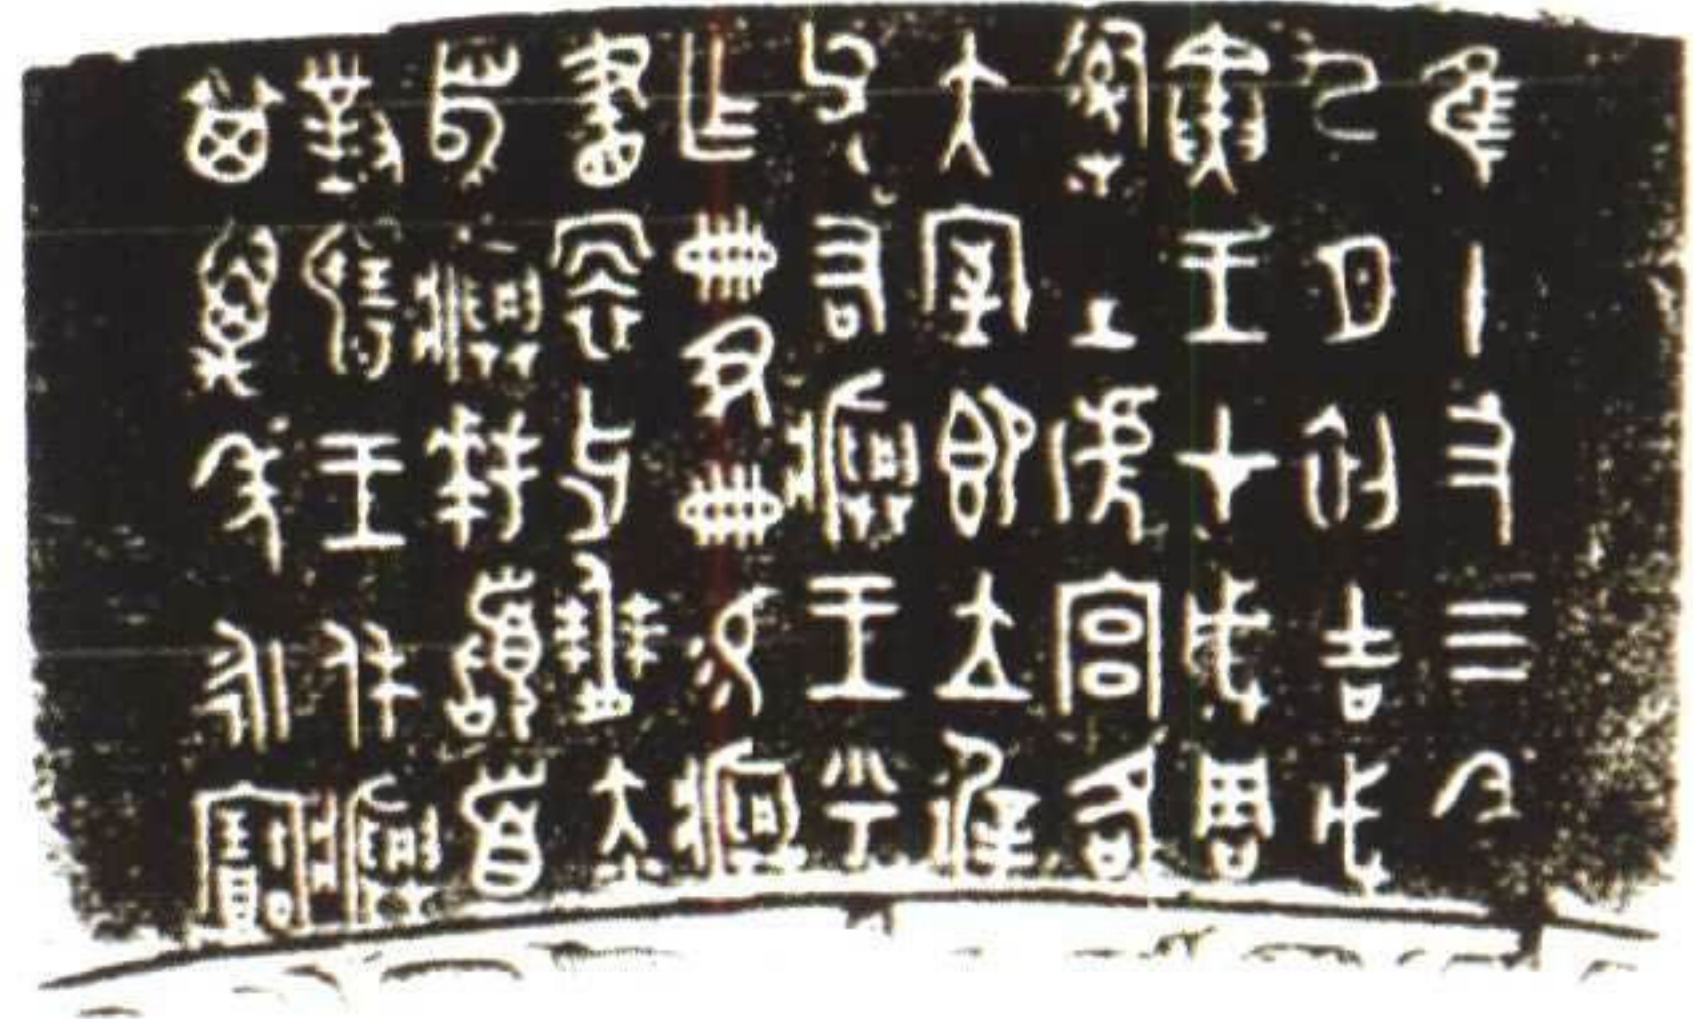 隹十又三年
九月初吉戊
寅王才成周
𤔲土淲宮各
大室即立𢓊
父右𤼈王乎
乍冊尹冊易𤼈
畫牙僰赤
舄𤼈拜𩒨首
對揚王休𤼈
其萬年永寶